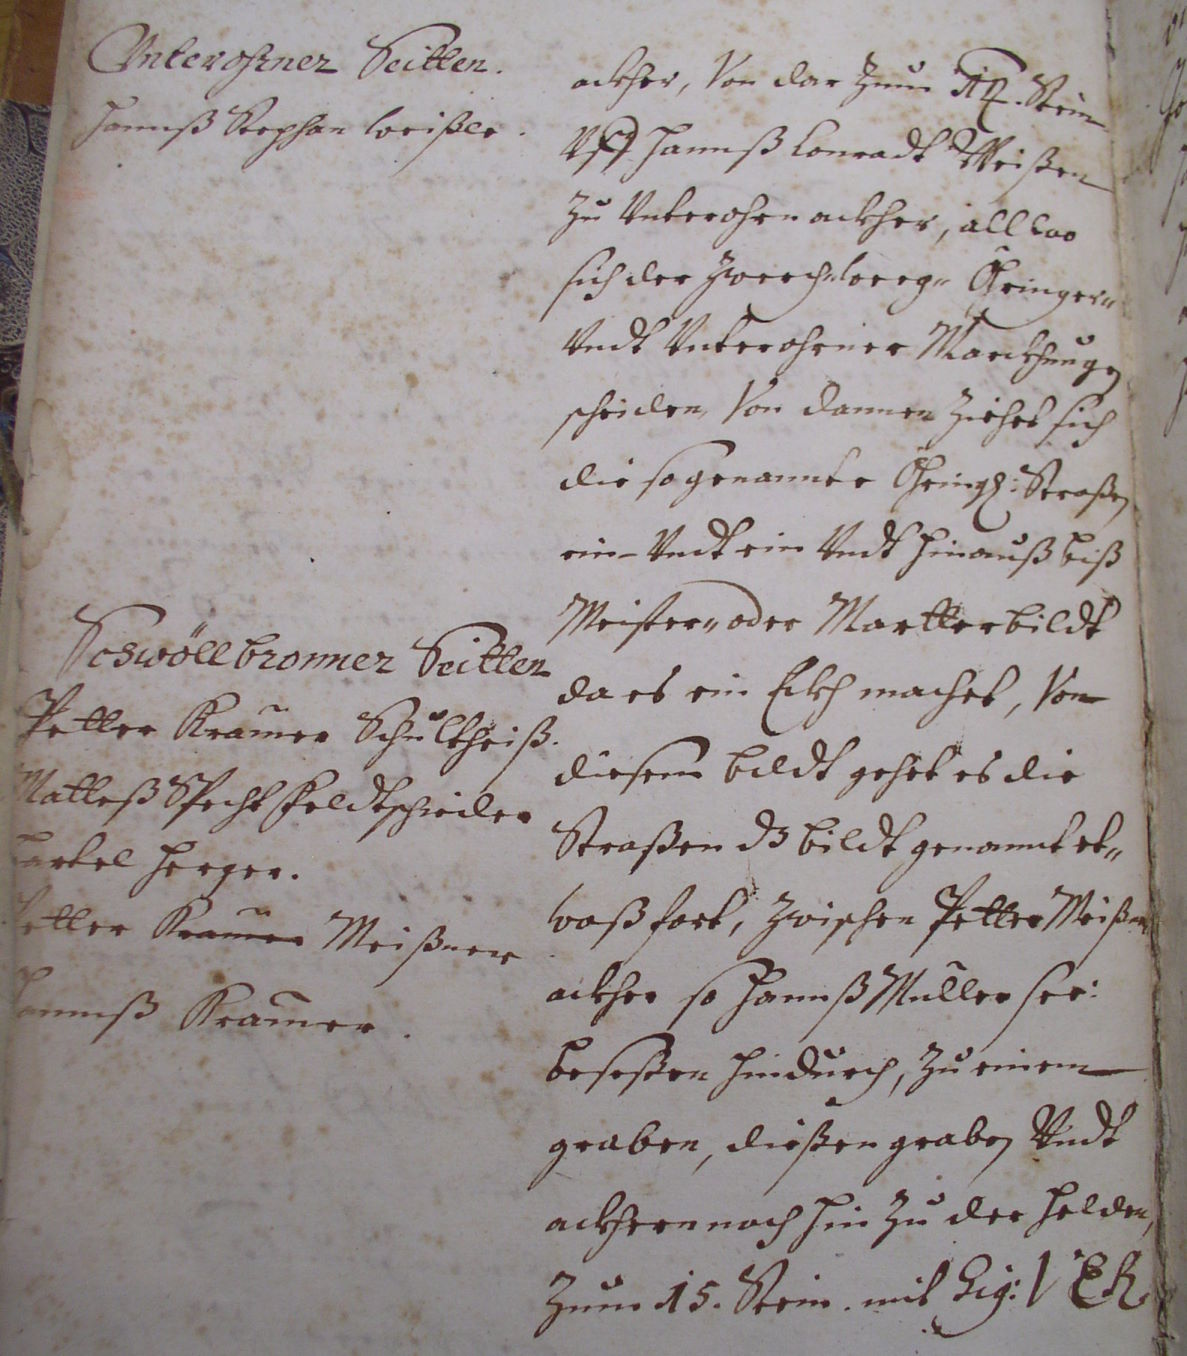 Unterohrner Seitten.
Hannß Stephan Weißle.
Schwöllbronner Seitten
Petter Kramer Schultheiß.
Matteß Specht Feldtschieder
Bartel Herger.
Petter Kramer Meißner
Hannß Kramer.
ackher, Von dar Zum 14. Stein
Vff Hannß Conradt Weißen
Zu Unterohrn ackher, allwo
sich der Zwerchweeg- Öhringer-
Undt Unterohrner Marckhung
scheiden, Von dannen Ziehet sich
die sogenannte Öhring: Straßen
ein- Undt ein Undt hinauß biß
Meister- oder Martterbildt
da es ein Eckh machet, Von
diesem bildt gehet es die
Straßen dz bildt genannt et-
waß fort, Zwischen Petter Meißners
ackher so Hannß Müller see:
beseßen hindurch, Zu einem
graben, dießen graben Undt
ackhern nach hin Zu der Helden,
Zum 15. Stein. mit Sig: V E R